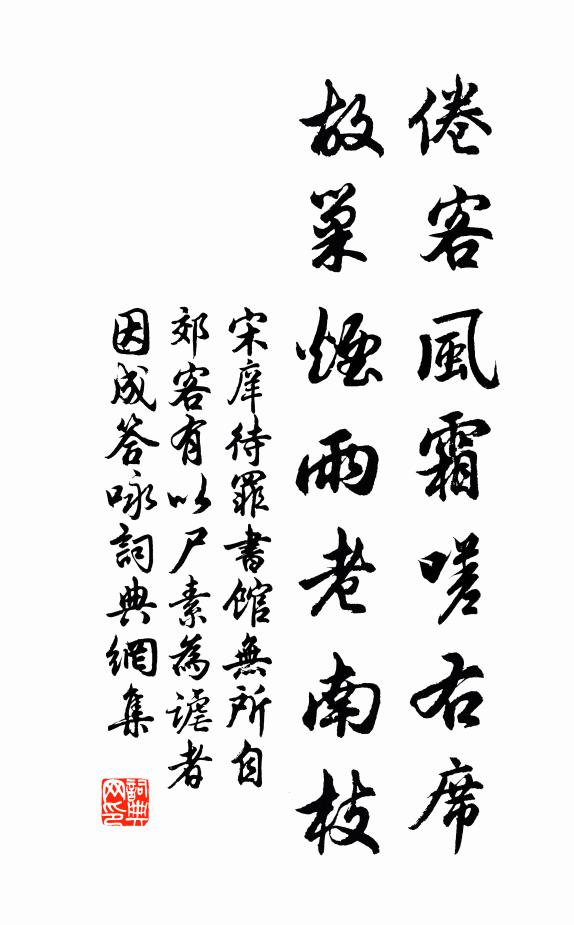 倦客風霜嗟右席
故巢煙雨老南枝
宋庠待罪書館無所自
郊客有以尸素為謔者
因成答咏詞典網集
詞典网印